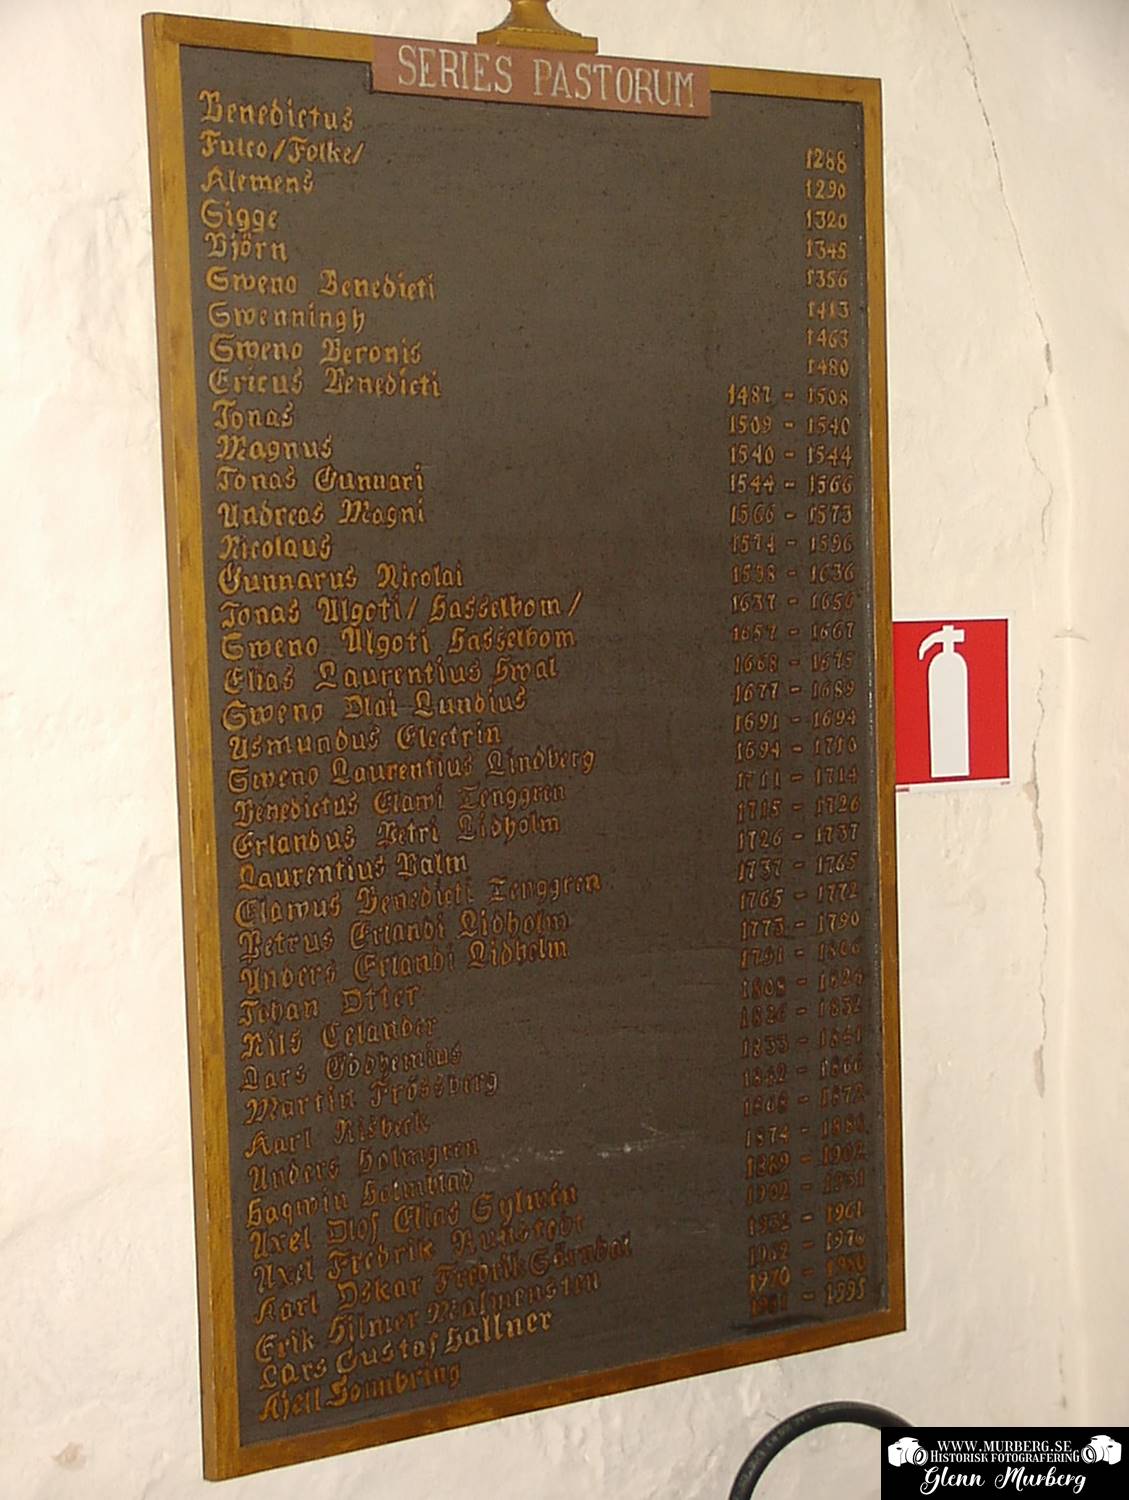 SERIES PASTORUM
Benedictus 1288
Fulco /Folke/ 1290
Klemens 1320
Sigge 1345
Björn 1356
Sweno Benedicti 1413
Swenningh 1463
Sweno Beronis 1480
Ericus Benedicti 1487 - 1508
Jonas 1509 - 1540
Magnus 1540 - 1544
Jonas Gunnari 1544 - 1566
Andreas Magni 1566 - 1573
Nicolaus 1574 - 1596
Gunnarus Nicolai 1598 - 1636
Jonas Algoti /Hasselbom/ 1637 - 1656
Sweno Algoti Hasselbom 1657 - 1667
Elias Laurentius Hwal 1668 - 1675
Sweno Olai Lundius 1677 - 1689
Asmundus Electrin 1691 - 1694
Sweno Laurentius Lindberg 1694 - 1710
Benedictus Clawi Tenggren 1711 - 1714
Erlandus Petri Lidholm 1715 - 1726
Laurentius Palm 1726 - 1737
Clawus Benedicti Tenggren 1737 - 1765
Petrus Erlandi Lidholm 1765 - 1772
Anders Erlandi Lidholm 1773 - 1790
Johan Otter 1791 - 1806
Nils Celander 1808 - 1824
Lars Godhemius 1826 - 1832
Martin Frössberg 1833 - 1841
Karl Risbeck 1842 - 1866
Anders Holmgren 1868 - 1872
Haqwin Holmblad 1874 - 1888
Axel Olof Elias Sylwén 1889 - 1902
Axel Fredrik Runstedt 1902 - 1931
Karl Oskar Fredrik Särndal 1932 - 1961
Erik Hilmer Malmensten 1962 - 1976
Lars Gustaf Hallner 1970 - 1980
Kjell Sonnbring 1981 - 1995
WWW.MURBERG.SE
HISTORISK FOTOGRAFERING
Glenn Murberg